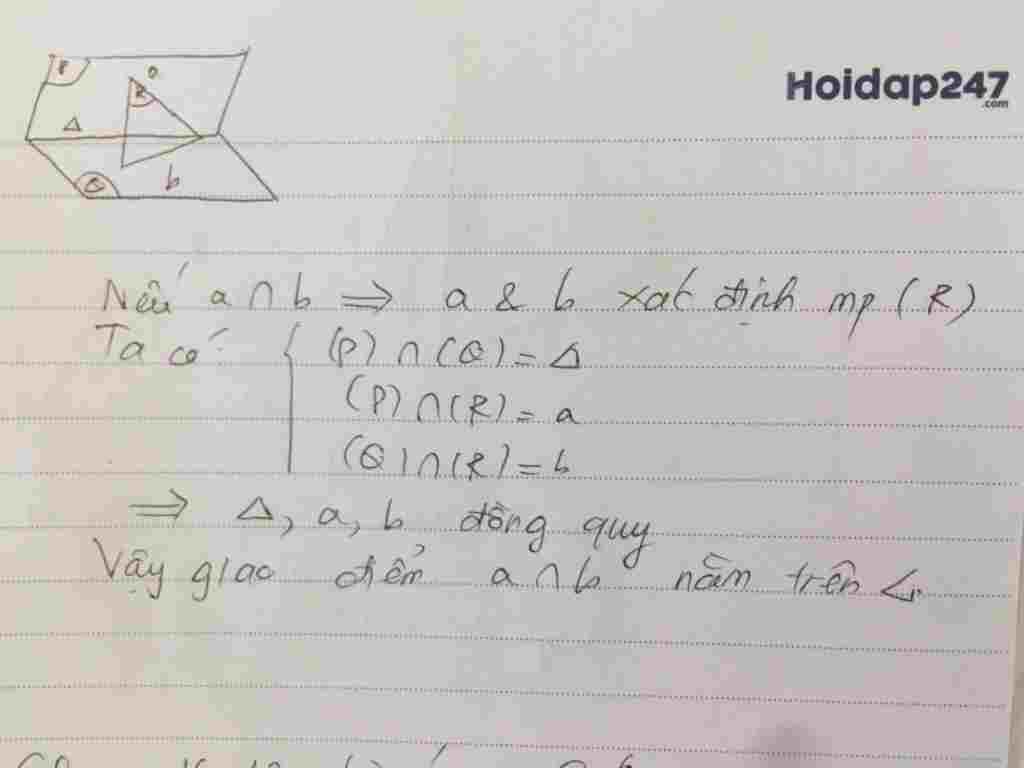 Hoidap247
.com
P
O
R
Δ
Q
b
Nếu a ∩ b ⟹ a & b xác định mp (R)
Ta có: { (P) ∩ (Q) = Δ
(P) ∩ (R) = a
(Q) ∩ (R) = b
⟹ Δ, a, b đồng quy
Vậy giao điểm a ∩ b nằm trên Δ.